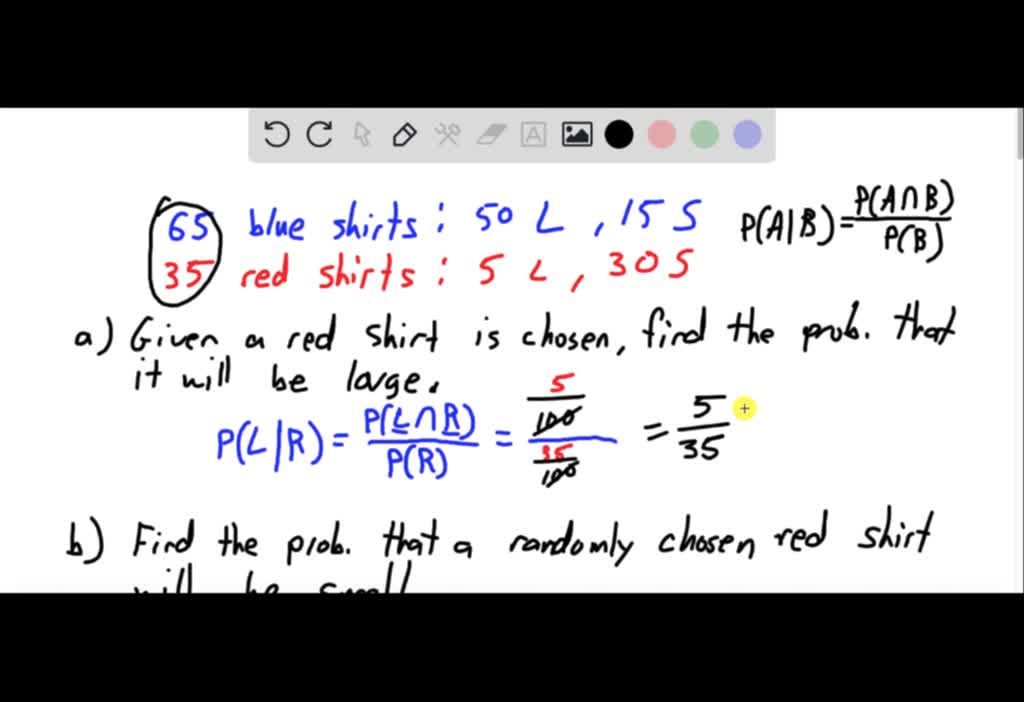 65 blue shirts: 50 L, 15 S
P(A|B) = P(A∩B) / P(B)
35 red shirts: 5 L, 30 S
a) Given a red shirt is chosen, find the prob. that
it will be large.
P(L|R) = P(L∩R) / P(R) = 5/100 / 35/100 = 5/35
b) Find the prob. that a randomly chosen red shirt
will be small